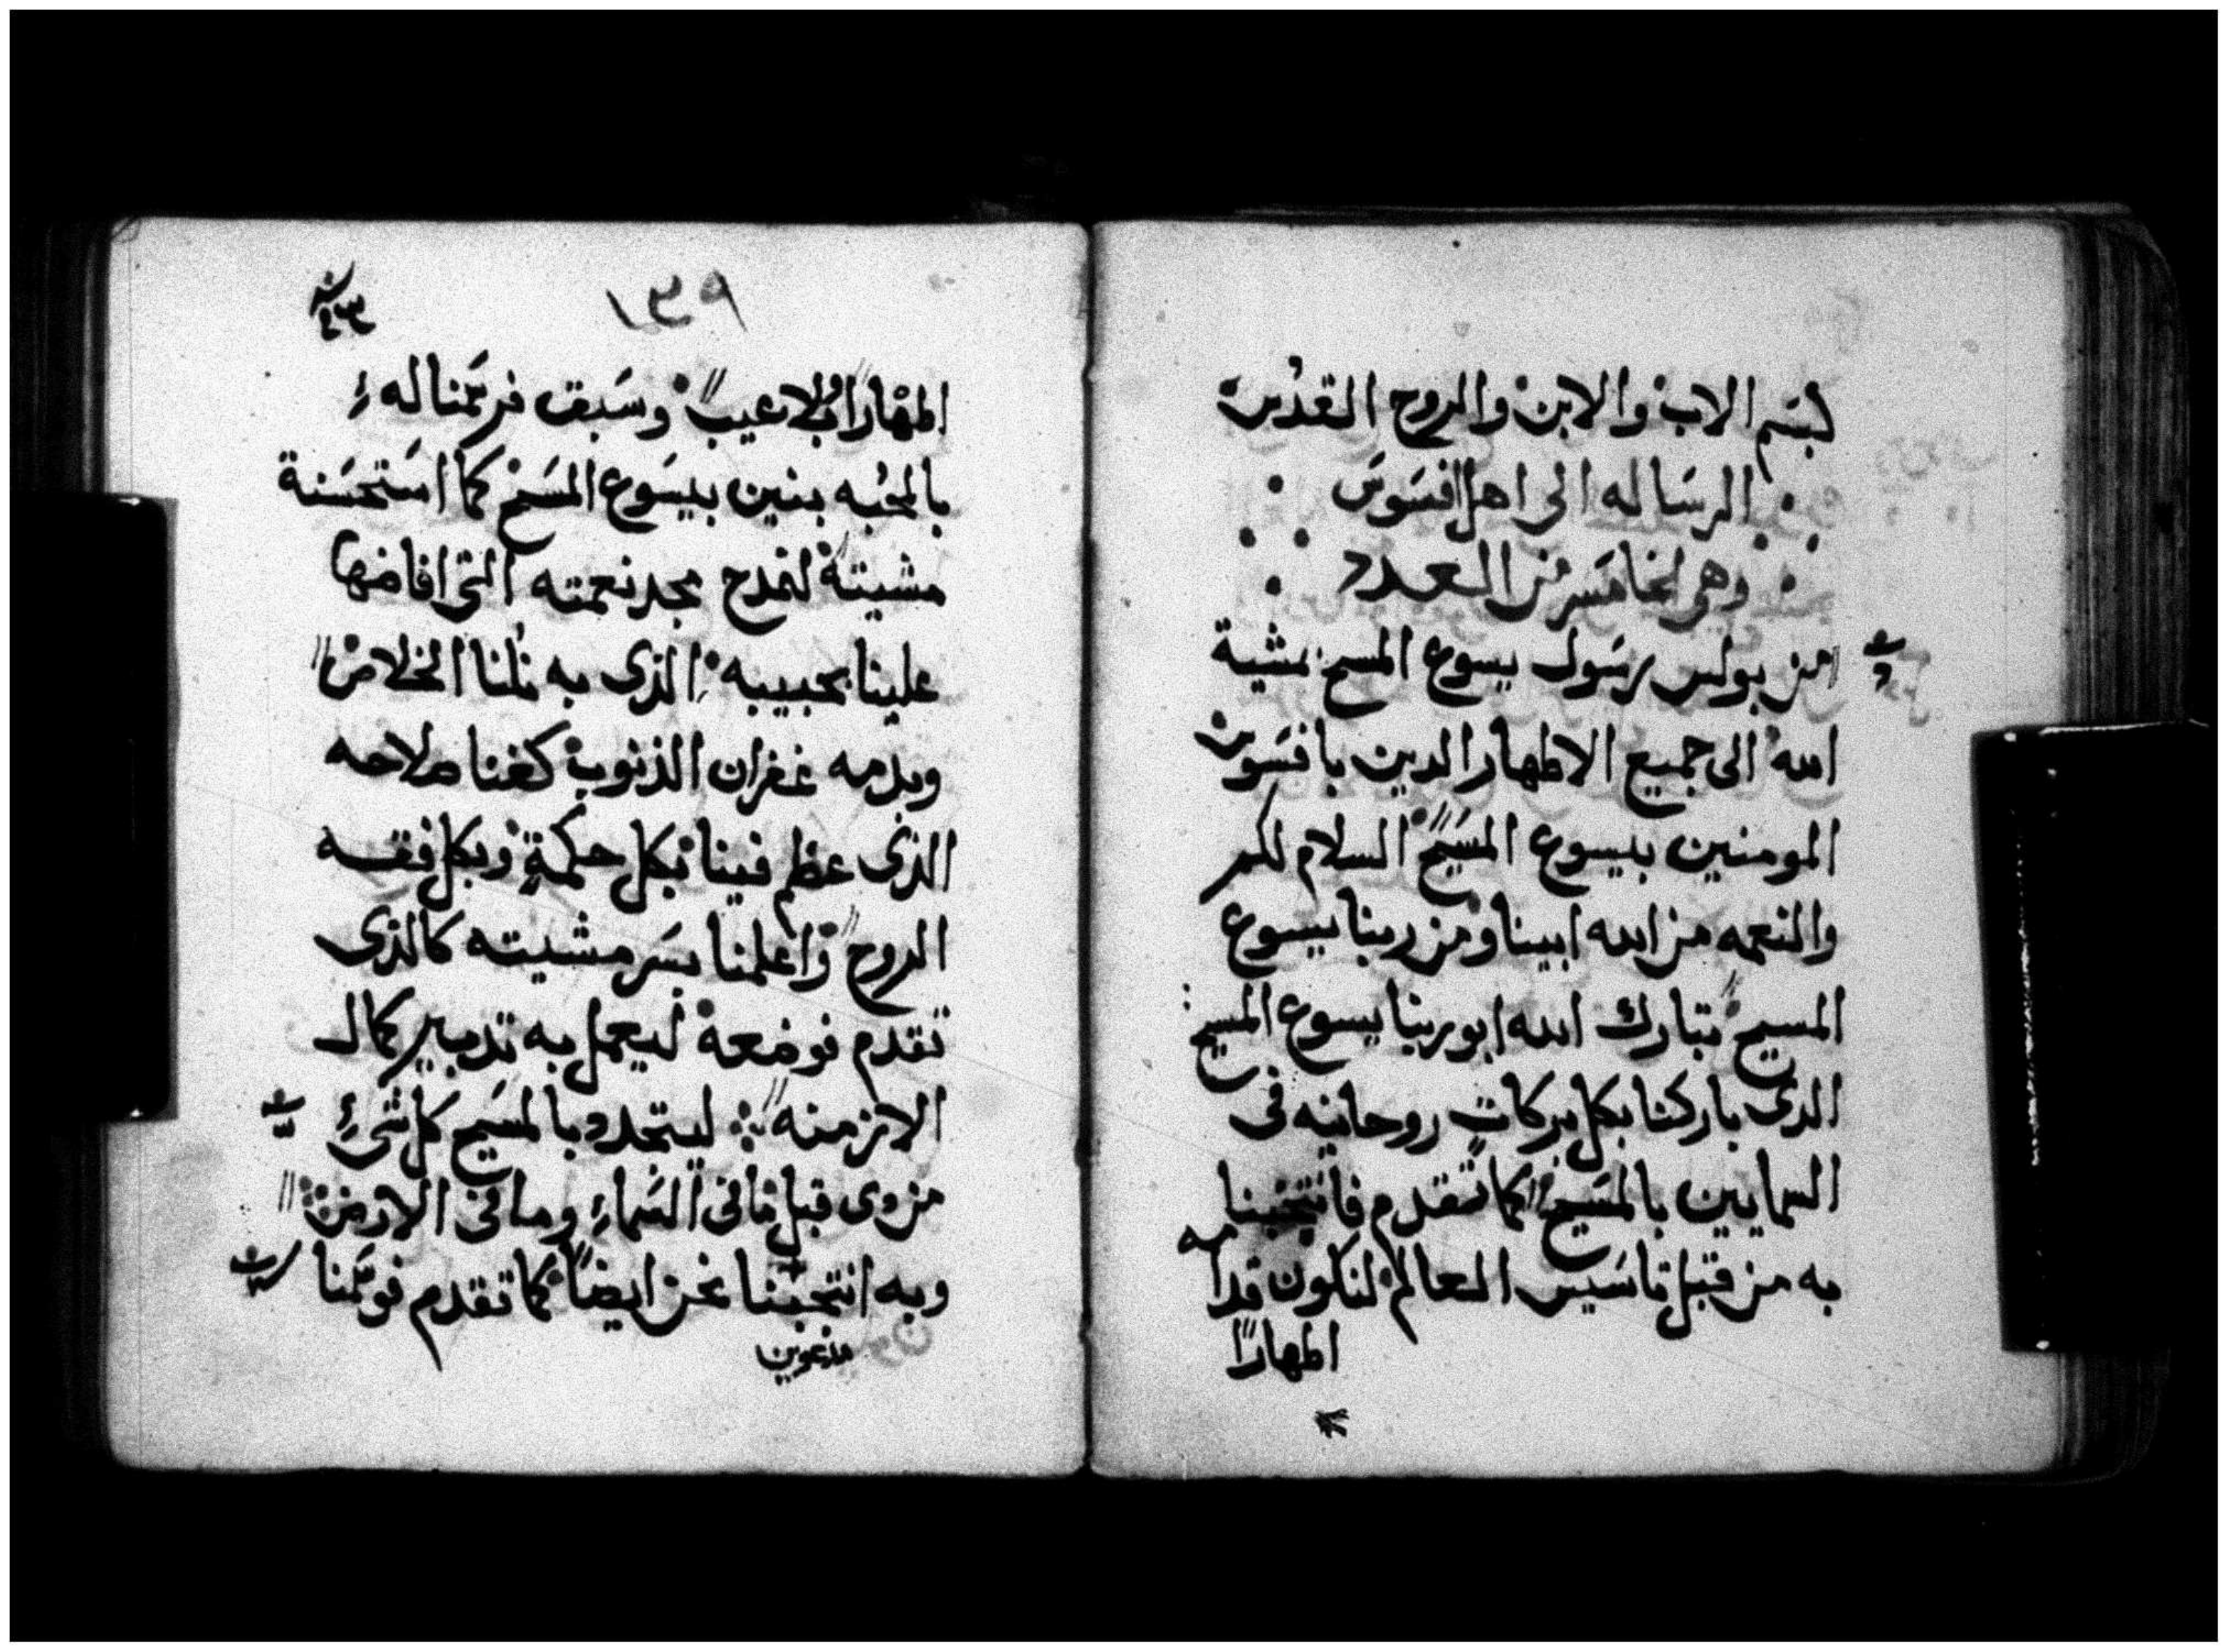 بسم الاب والابن والروح القدس
الرساله الى اهل افسوس
وهى الخامسه من العدد
من بولس رسول يسوع المسيح بمشية
الله الى جميع الاطهار الدين بافسوس
المومنين بيسوع المسيح السلام لكم
والنعمه من الله ابينا ومن ربنا يسوع
المسيح تبارك الله ابو ربنا يسوع المسيح
الدى باركنا بكل بركات روحانيه فى
السمايين بالمسيح كما تقدم فانتخبنا
به من قبل تاسيس العالم لنكون قدامه
اطهارًا
١٣٩
اطهارًا بلا عيب وسبق فرسمنا له
بالمحبه بنين بيسوع المسيح كما استحسنة
مشيته لنمدح مجد نعمته التى افاضها
علينا بحبيبه الذى به نلنا الخلاص
وبدمه غفران الذنوب كغنا صلاحه
الذى عظم فينا بكل حكمةٍ وبكل فقه
الروح واعلمنا بسر مشيته كالذى
تقدم فوضعه ليعمل به تدبير كمال
الازمنه ليتجدد بالمسيح كل شىء
من دى قبل مافى السماء وما فى الارض
وبه انتخبنا نحن ايضًا كما تقدم فوسمنا
مدعوين